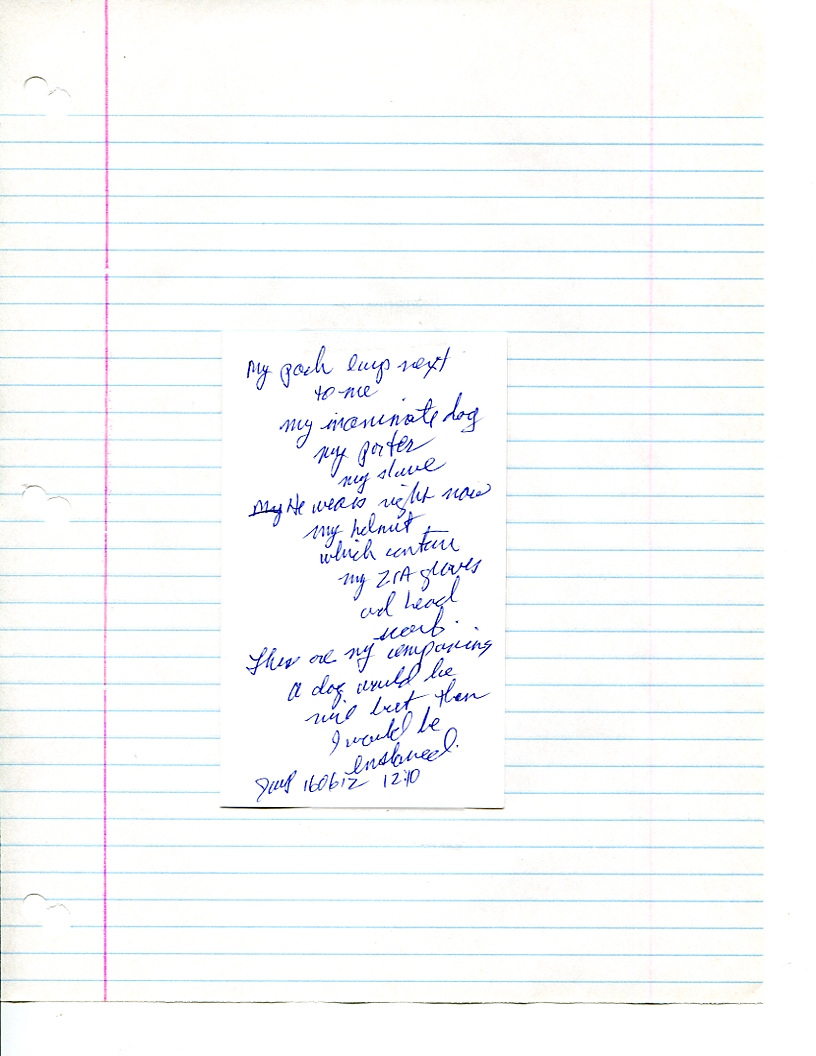 My pack next
to me
my inanimate dog
my porter
my slave
My He wears right now
my helmut
which contain
my gloves
and head
scarb.
These are my companions
A dog would be
nice but then
I would be
enslaved.
160612 12:10